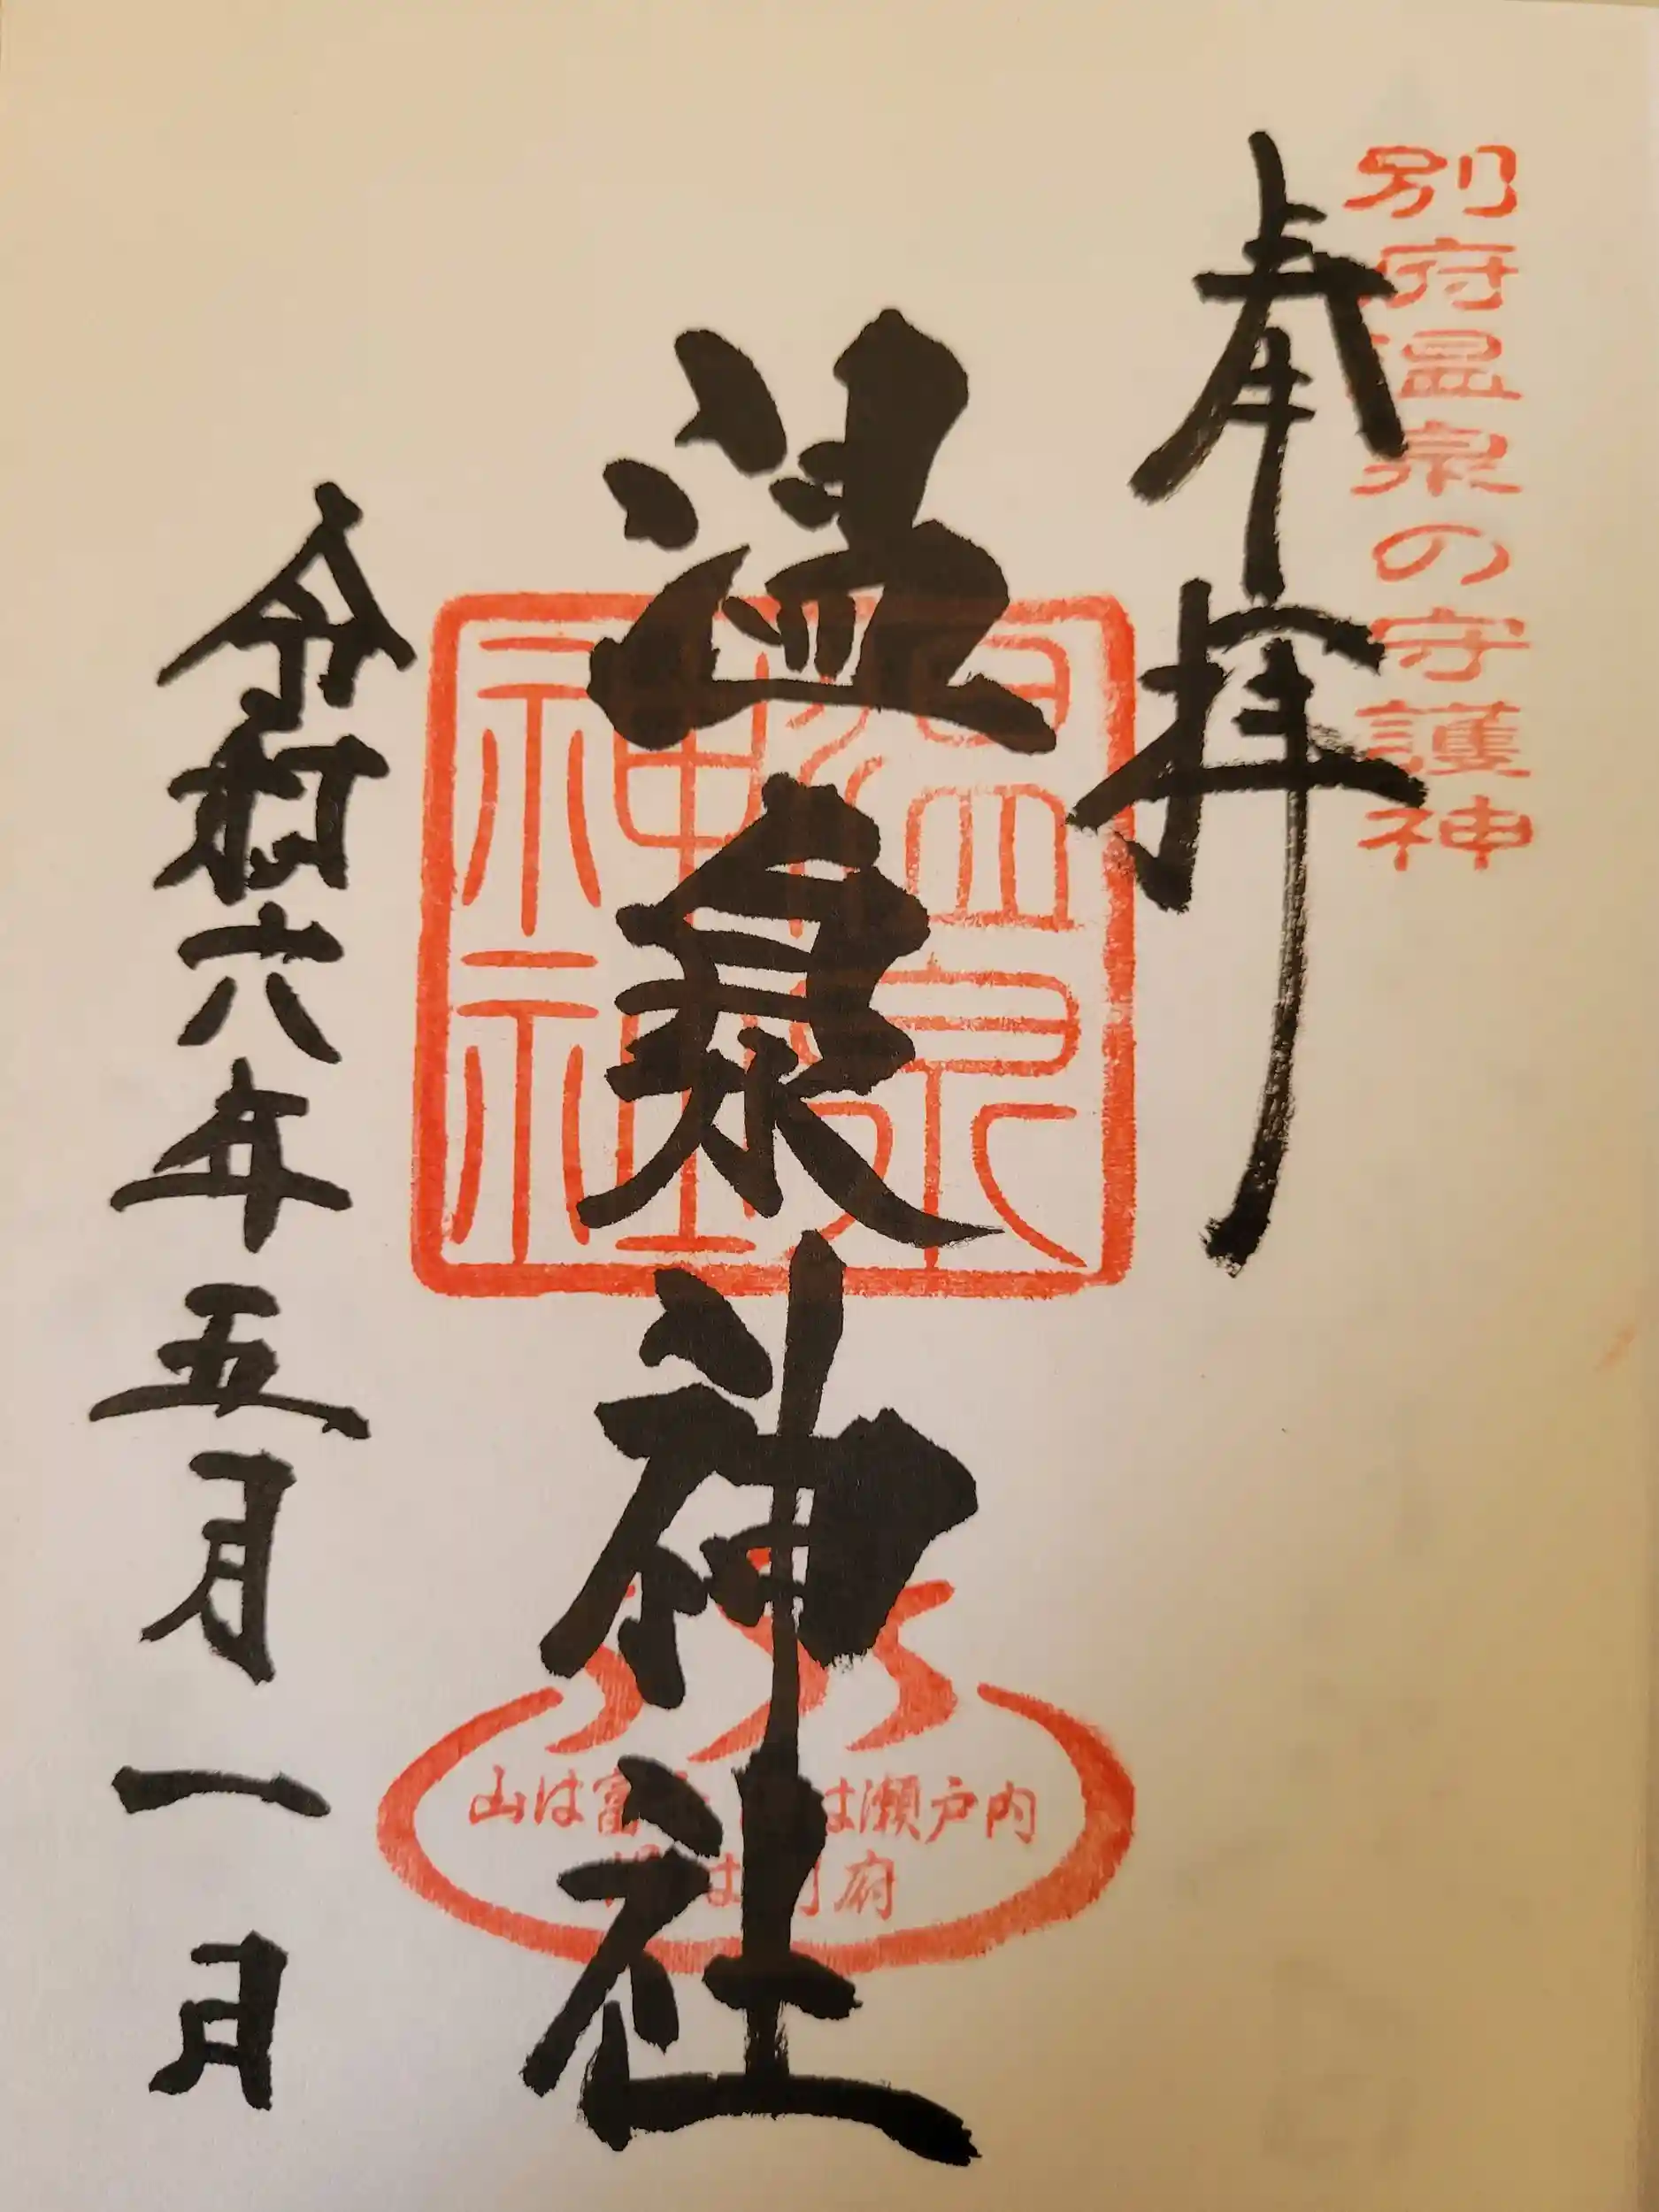 別府温泉の守護神
奉拝
温泉神社
温泉神社
山は富 は瀬戸内
は 府
令和六年五月一日